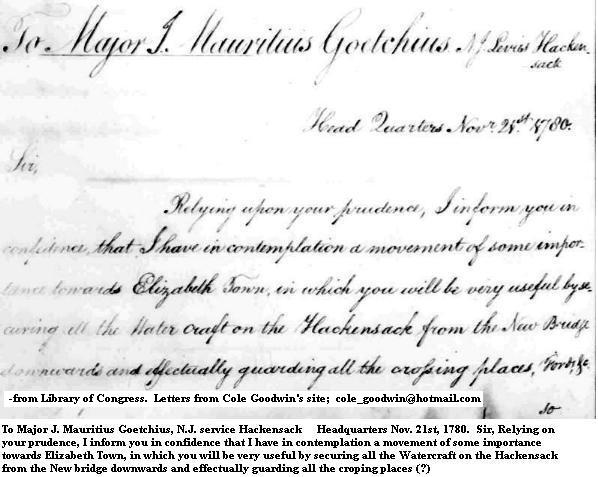 To Major J. Mauritius Goetchius N.J. Levies Hacken-
sack
Head Quarters Novr. 21st. 1780.
Sir,
Relying upon your prudence, I inform you in
confidence, that I have in contemplation a movement of some impor-
tance towards Elizabeth Town, in which you will be very useful by se-
curing all the Water craft on the Hackensack from the New Bridge
downwards and effectually guarding all the crossing places, Fords, &c.
so
-from Library of Congress.  Letters from Cole Goodwin's site;  cole_goodwin@hotmail.com
To Major J. Mauritius Goetchius, N.J. service Hackensack    Headquarters Nov. 21st, 1780.  Sir, Relying on
your prudence, I inform you in confidence that I have in contemplation a movement of some importance
towards Elizabeth Town, in which you will be very useful by securing all the Watercraft on the Hackensack
from the New bridge downwards and effectually guarding all the croping places (?)